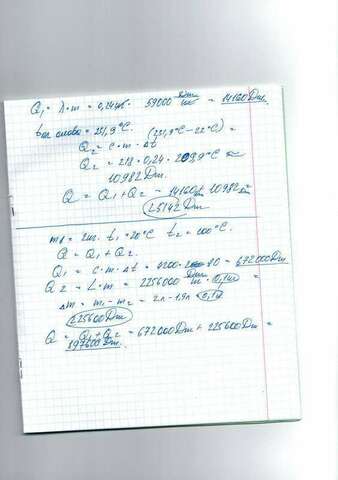 Q₁ = λ·m = 0,24кг · 59000 Дж/кг = 14160 Дж.
tпл олова = 231,9°C. (231,9°C – 22°C) =
Q₂ = c·m·Δt
Q₂ = 218·0,24·209,9°C ≈
10982 Дж.
Q = Q₁+Q₂ = 14160 + 10982 =
25142 Дж
mв = 2кг. t₁ = 20°C t₂ = 100°C.
Q = Q₁+Q₂.
Q₁ = c·m·Δt = 4200·2·80 = 672000 Дж
Q₂ = L·m = 2256000 Дж/кг · 0,1кг =
Δm = m₁–m₂ = 2л – 1,9л = 0,1кг
225600 Дж
Q = Q₁+Q₂ = 672000 Дж + 225600 Дж =
897600 Дж